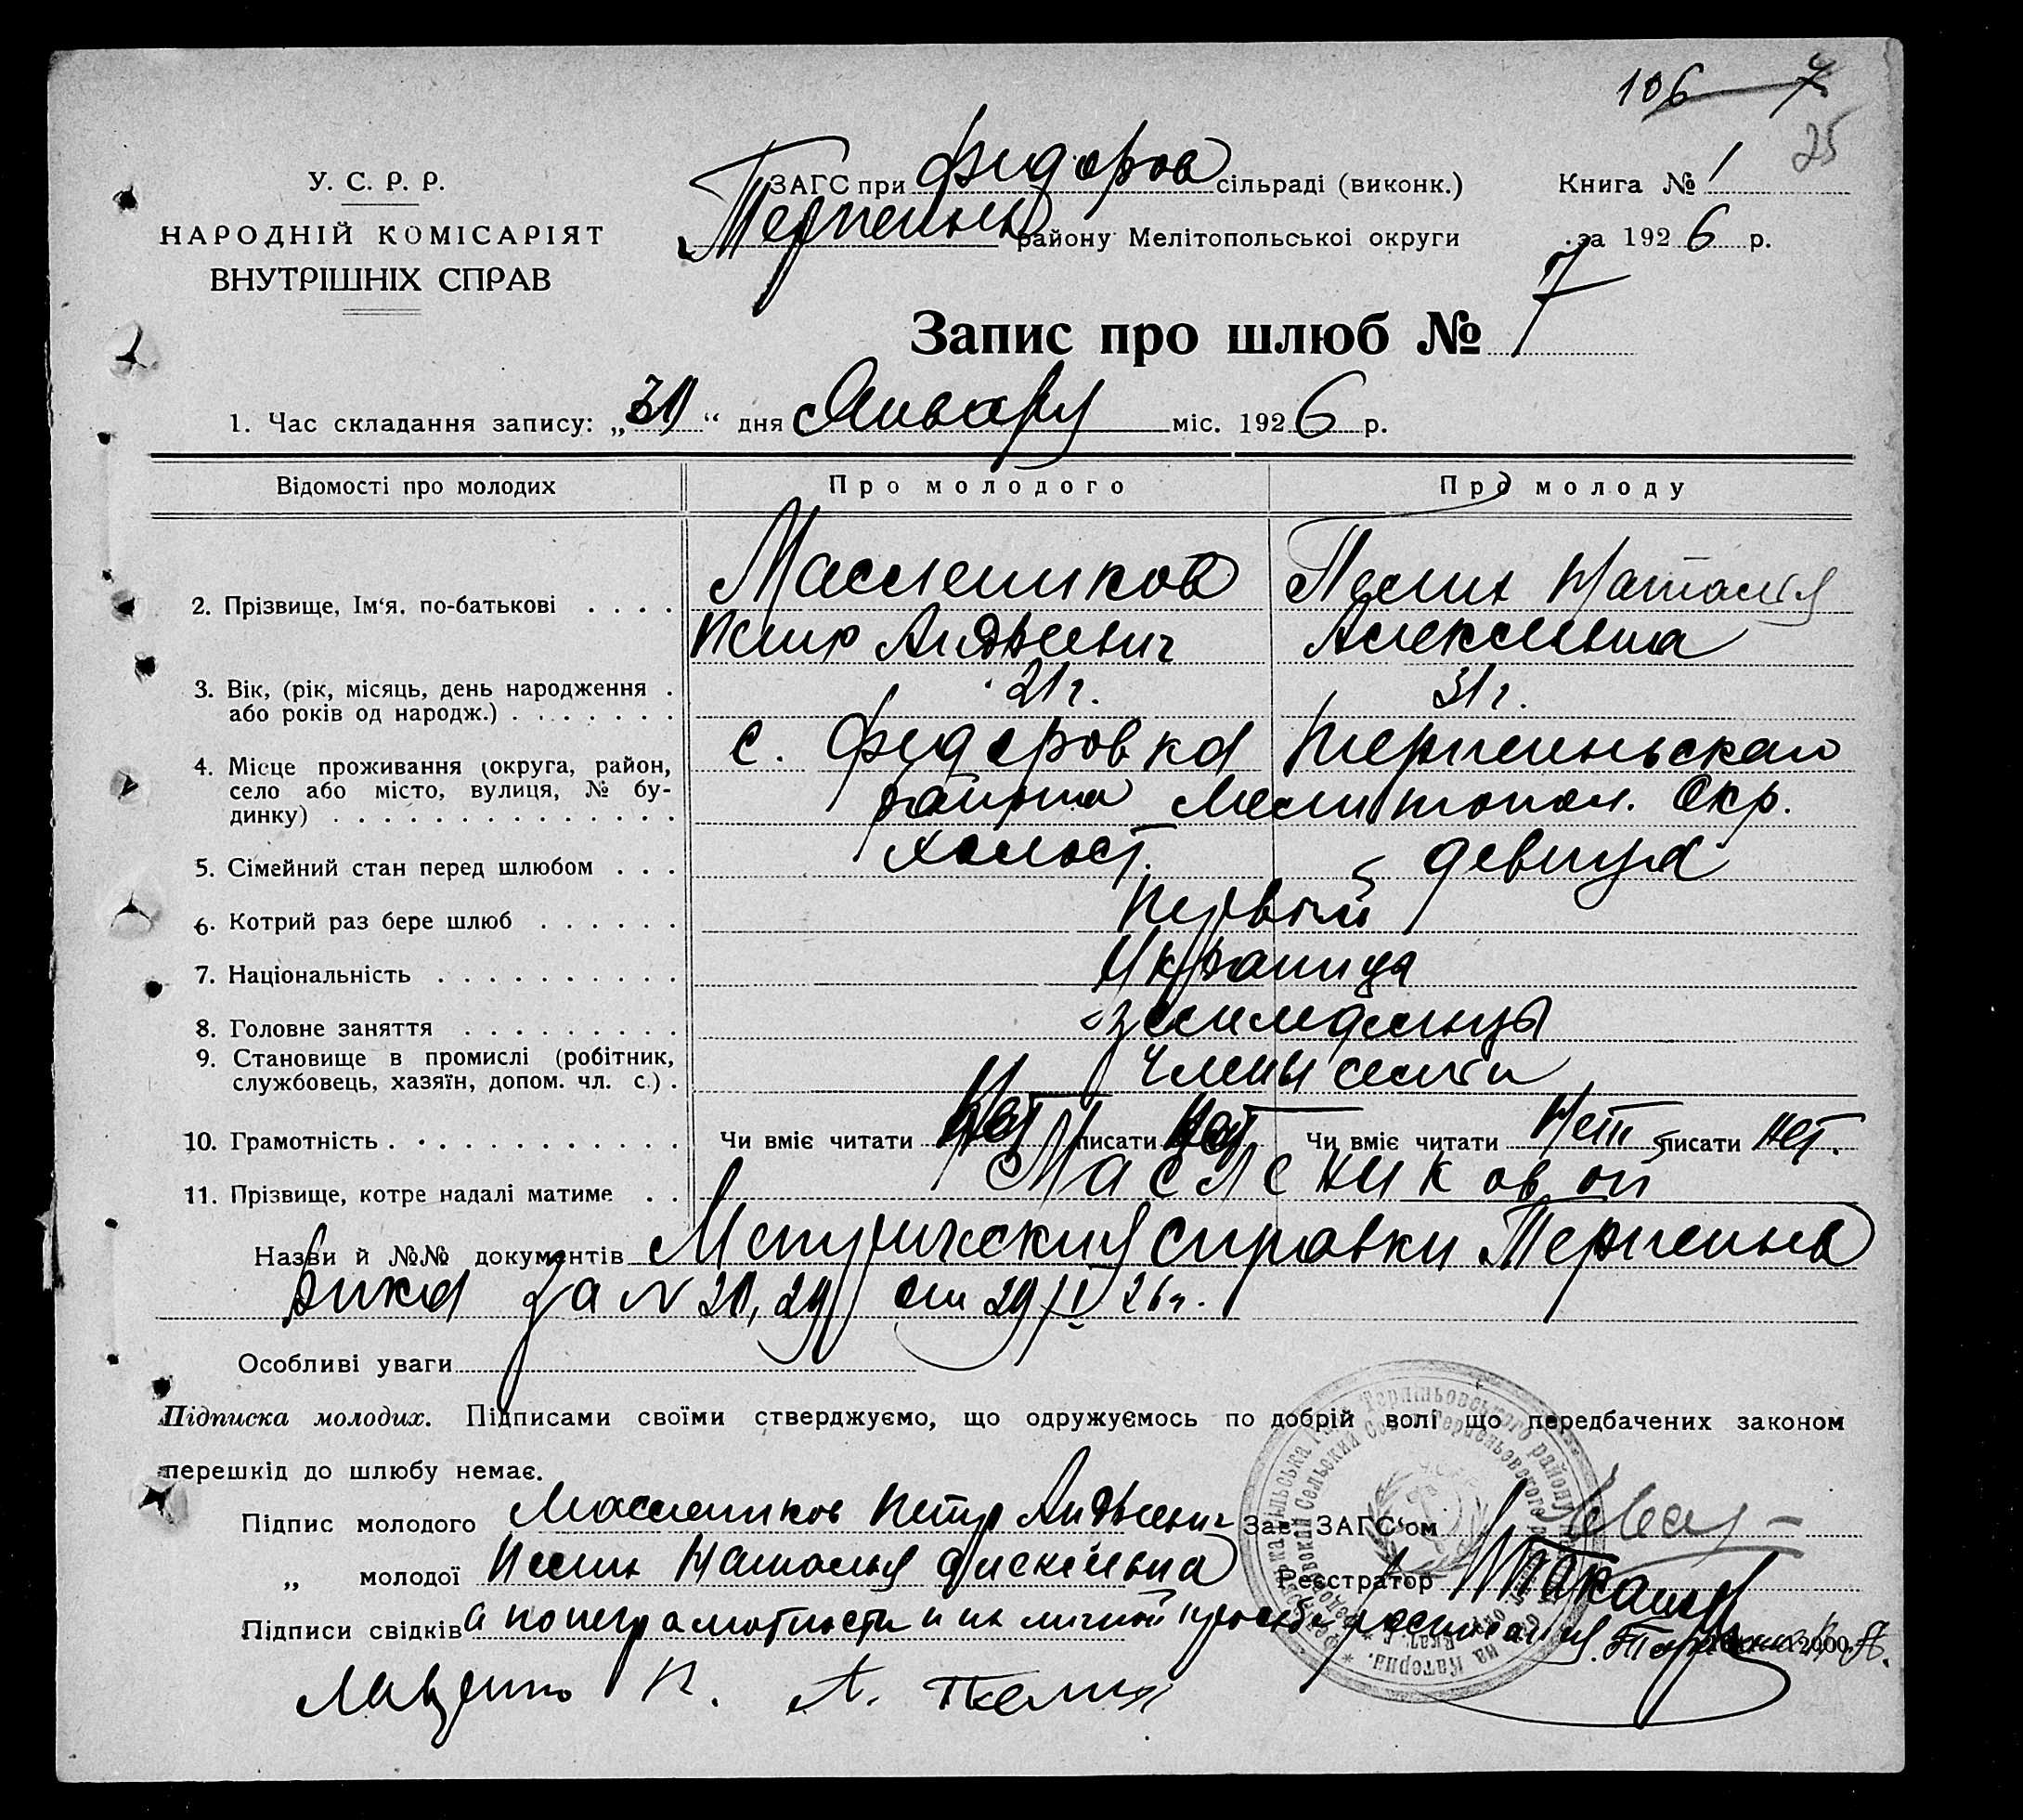 106 7
25
У. С. Р. Р.
НАРОДНІЙ КОМІСАРІЯТ
ВНУТРІШНІХ СПРАВ
ЗАГС при Федоров сільраді (виконк.) Книга № 1
Терпеньев району Мелітопольськоі округи за 1926 р.
Запис про шлюб № 7
1. Час складання запису: „30“ дня Январу міс. 1926 р.
Відомості про молодих Про молодого Про молоду
2. Прізвище, Ім‘я, по-батькові . . . . Маслеников Наталія
Петр Андреевич Алексеевна
3. Вік, (рік, місяць, день народження . 21 г. 31 г.
або років од народж.) . . . . . . .
4. Місце проживання (округа, район, с. Федоровка Терпеньевскаго
село або місто, вулиця, № бу- района Мелитопол. Окр.
динку) . . . . . . . . . . . . . .
5. Сімейний стан перед шлюбом . . . холост. девица
6. Котрий раз бере шлюб . . . . . . Первый
7. Національність . . . . . . . . . . Украинца
8. Головне заняття . . . . . . . . . земледельцы
9. Становище в промислі (робітник, члены семьи
службовець, хазяїн, допом. чл. с.) .
10. Грамотність . . . . . . . . . . . Чи вміє читати Нет писати Нет Чи вміє читати Нет писати нет.
11. Прізвище, котре надалі матиме . . Маслениковой
Назви й №№ документів Метрическия справки Терпеньев
Рика за № 20, 29 от 29/I 26 г.
Особливі уваги
Підписка молодих. Підписами своїми стверджуємо, що одружуємось по добрій волі що передбачених законом
перешкід до шлюбу немає.
Підпис молодого Маслеников Петр Андреевич Зав. ЗАГС‘ом
„ молодої Наталья Алексеевна Реєстратор
Підписи свідків а по неграмотности и их личной просьбе росписался